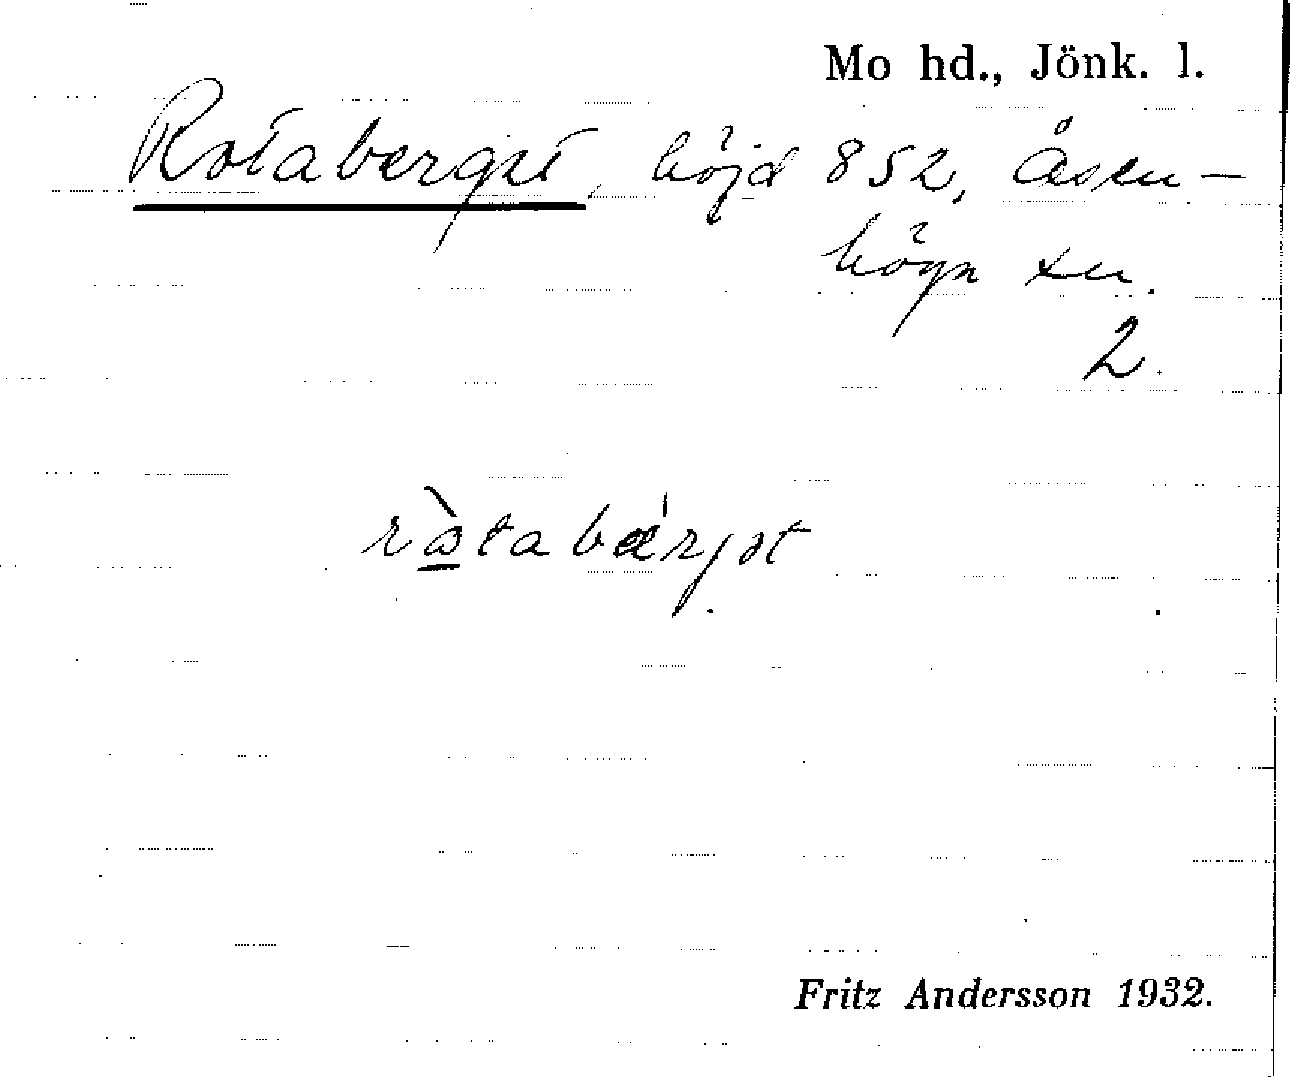 Mo hd., Jönk. l.
Rotaberget, höjd 852, Åsen-
höga sn.
2.
ràtabǽrjət
Fritz Andersson 1932.